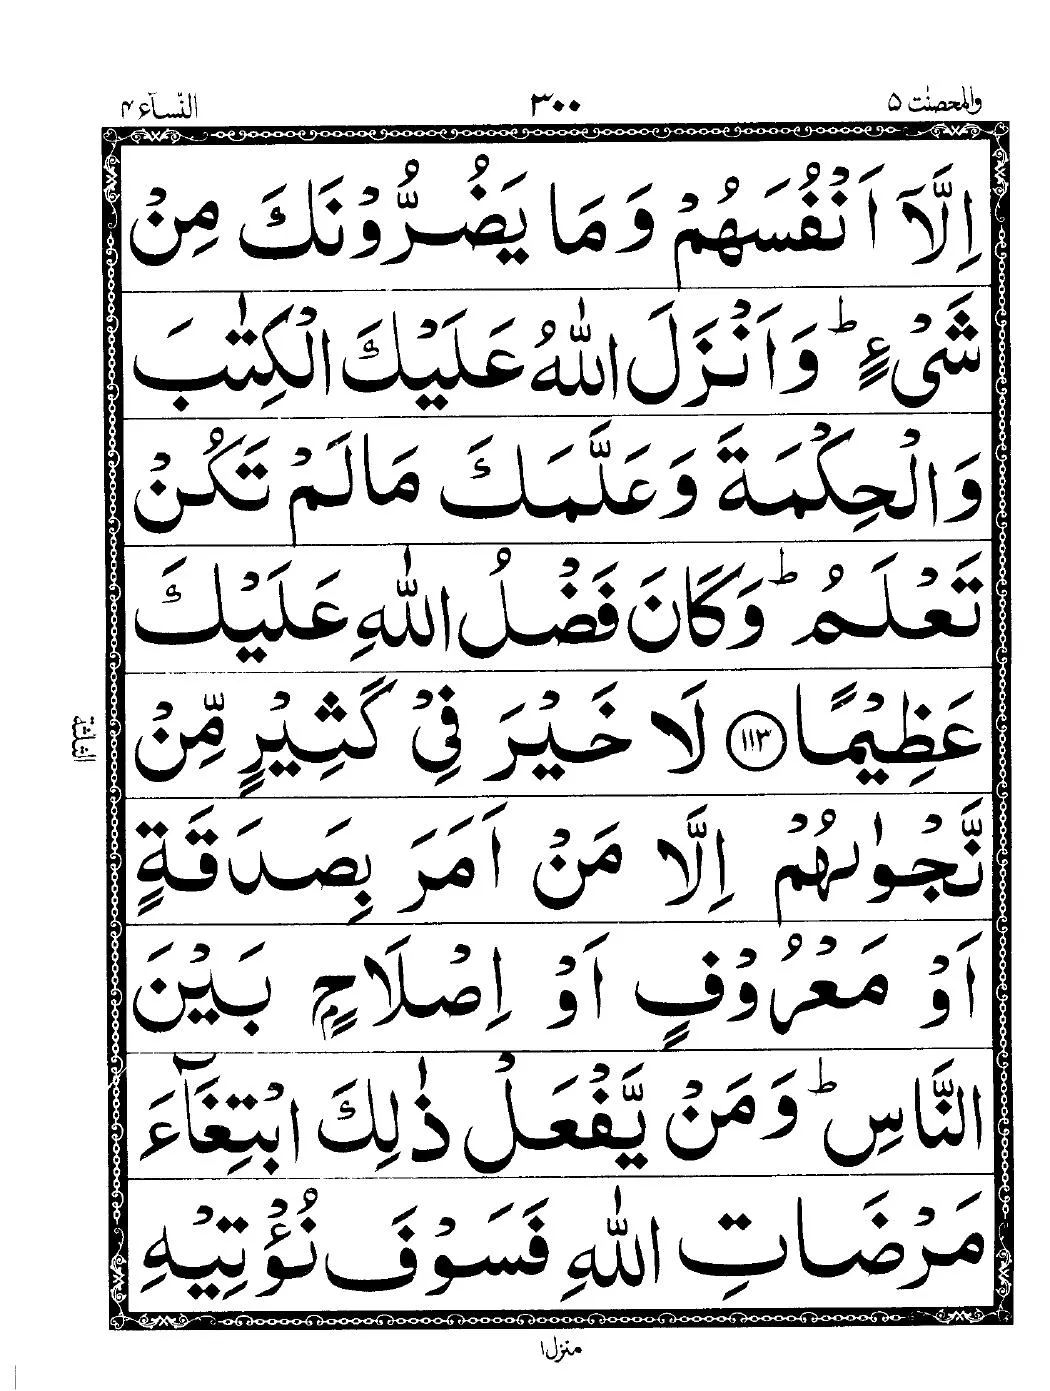 والمحصنٰت ۵
۳۰۰
النّسآء ۴
اِلَّاۤ اَنْفُسَهُمْ وَ مَا یَضُرُّوْنَكَ مِنْ
شَیْءٍ ؕ وَ اَنْزَلَ اللّٰهُ عَلَیْكَ الْكِتٰبَ
وَ الْحِكْمَةَ وَ عَلَّمَكَ مَا لَمْ تَكُنْ
تَعْلَمُ ؕ وَ كَانَ فَضْلُ اللّٰهِ عَلَیْكَ
عَظِیْمًا ۝۱۱۳ لَا خَیْرَ فِیْ كَثِیْرٍ مِّنْ
نَّجْوٰىهُمْ اِلَّا مَنْ اَمَرَ بِصَدَقَةٍ
اَوْ مَعْرُوْفٍ اَوْ اِصْلَاحٍۭ بَیْنَ
النَّاسِ ؕ وَ مَنْ یَّفْعَلْ ذٰلِكَ ابْتِغَآءَ
مَرْضَاتِ اللّٰهِ فَسَوْفَ نُؤْتِیْهِ
الثلثة
منزل ۱